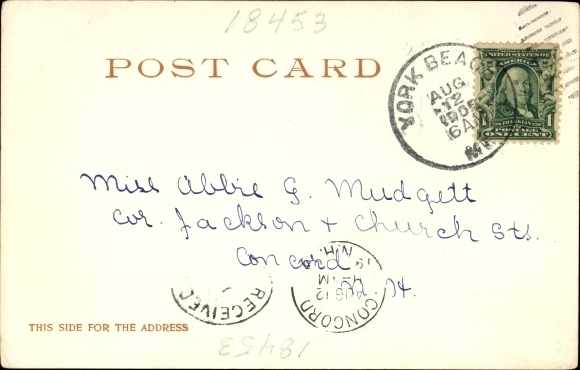 18453
POST CARD
YORK BEACH
AUG
12
1905
6AM
ME.
UNITED STATES OF
AMERICA
FRANKLIN
1 POSTAGE 1
ONE CENT
Miss Abbie G. Mudgett
Cor. Jackson & Church Sts.
Concord
N. H.
RECEIVED
CONCORD
AUG 12
N.H.
THIS SIDE FOR THE ADDRESS
18453